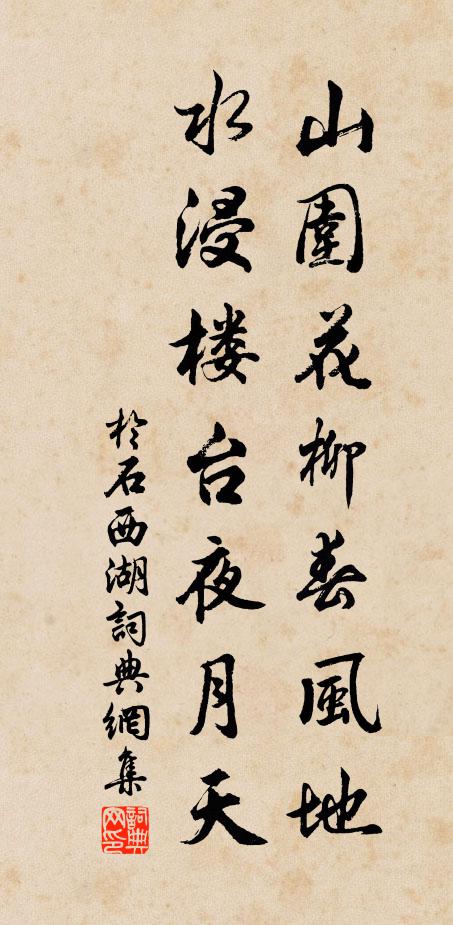 山圍花柳春風地
水浸楼台夜月天
於石西湖詞典網集
詞典网印